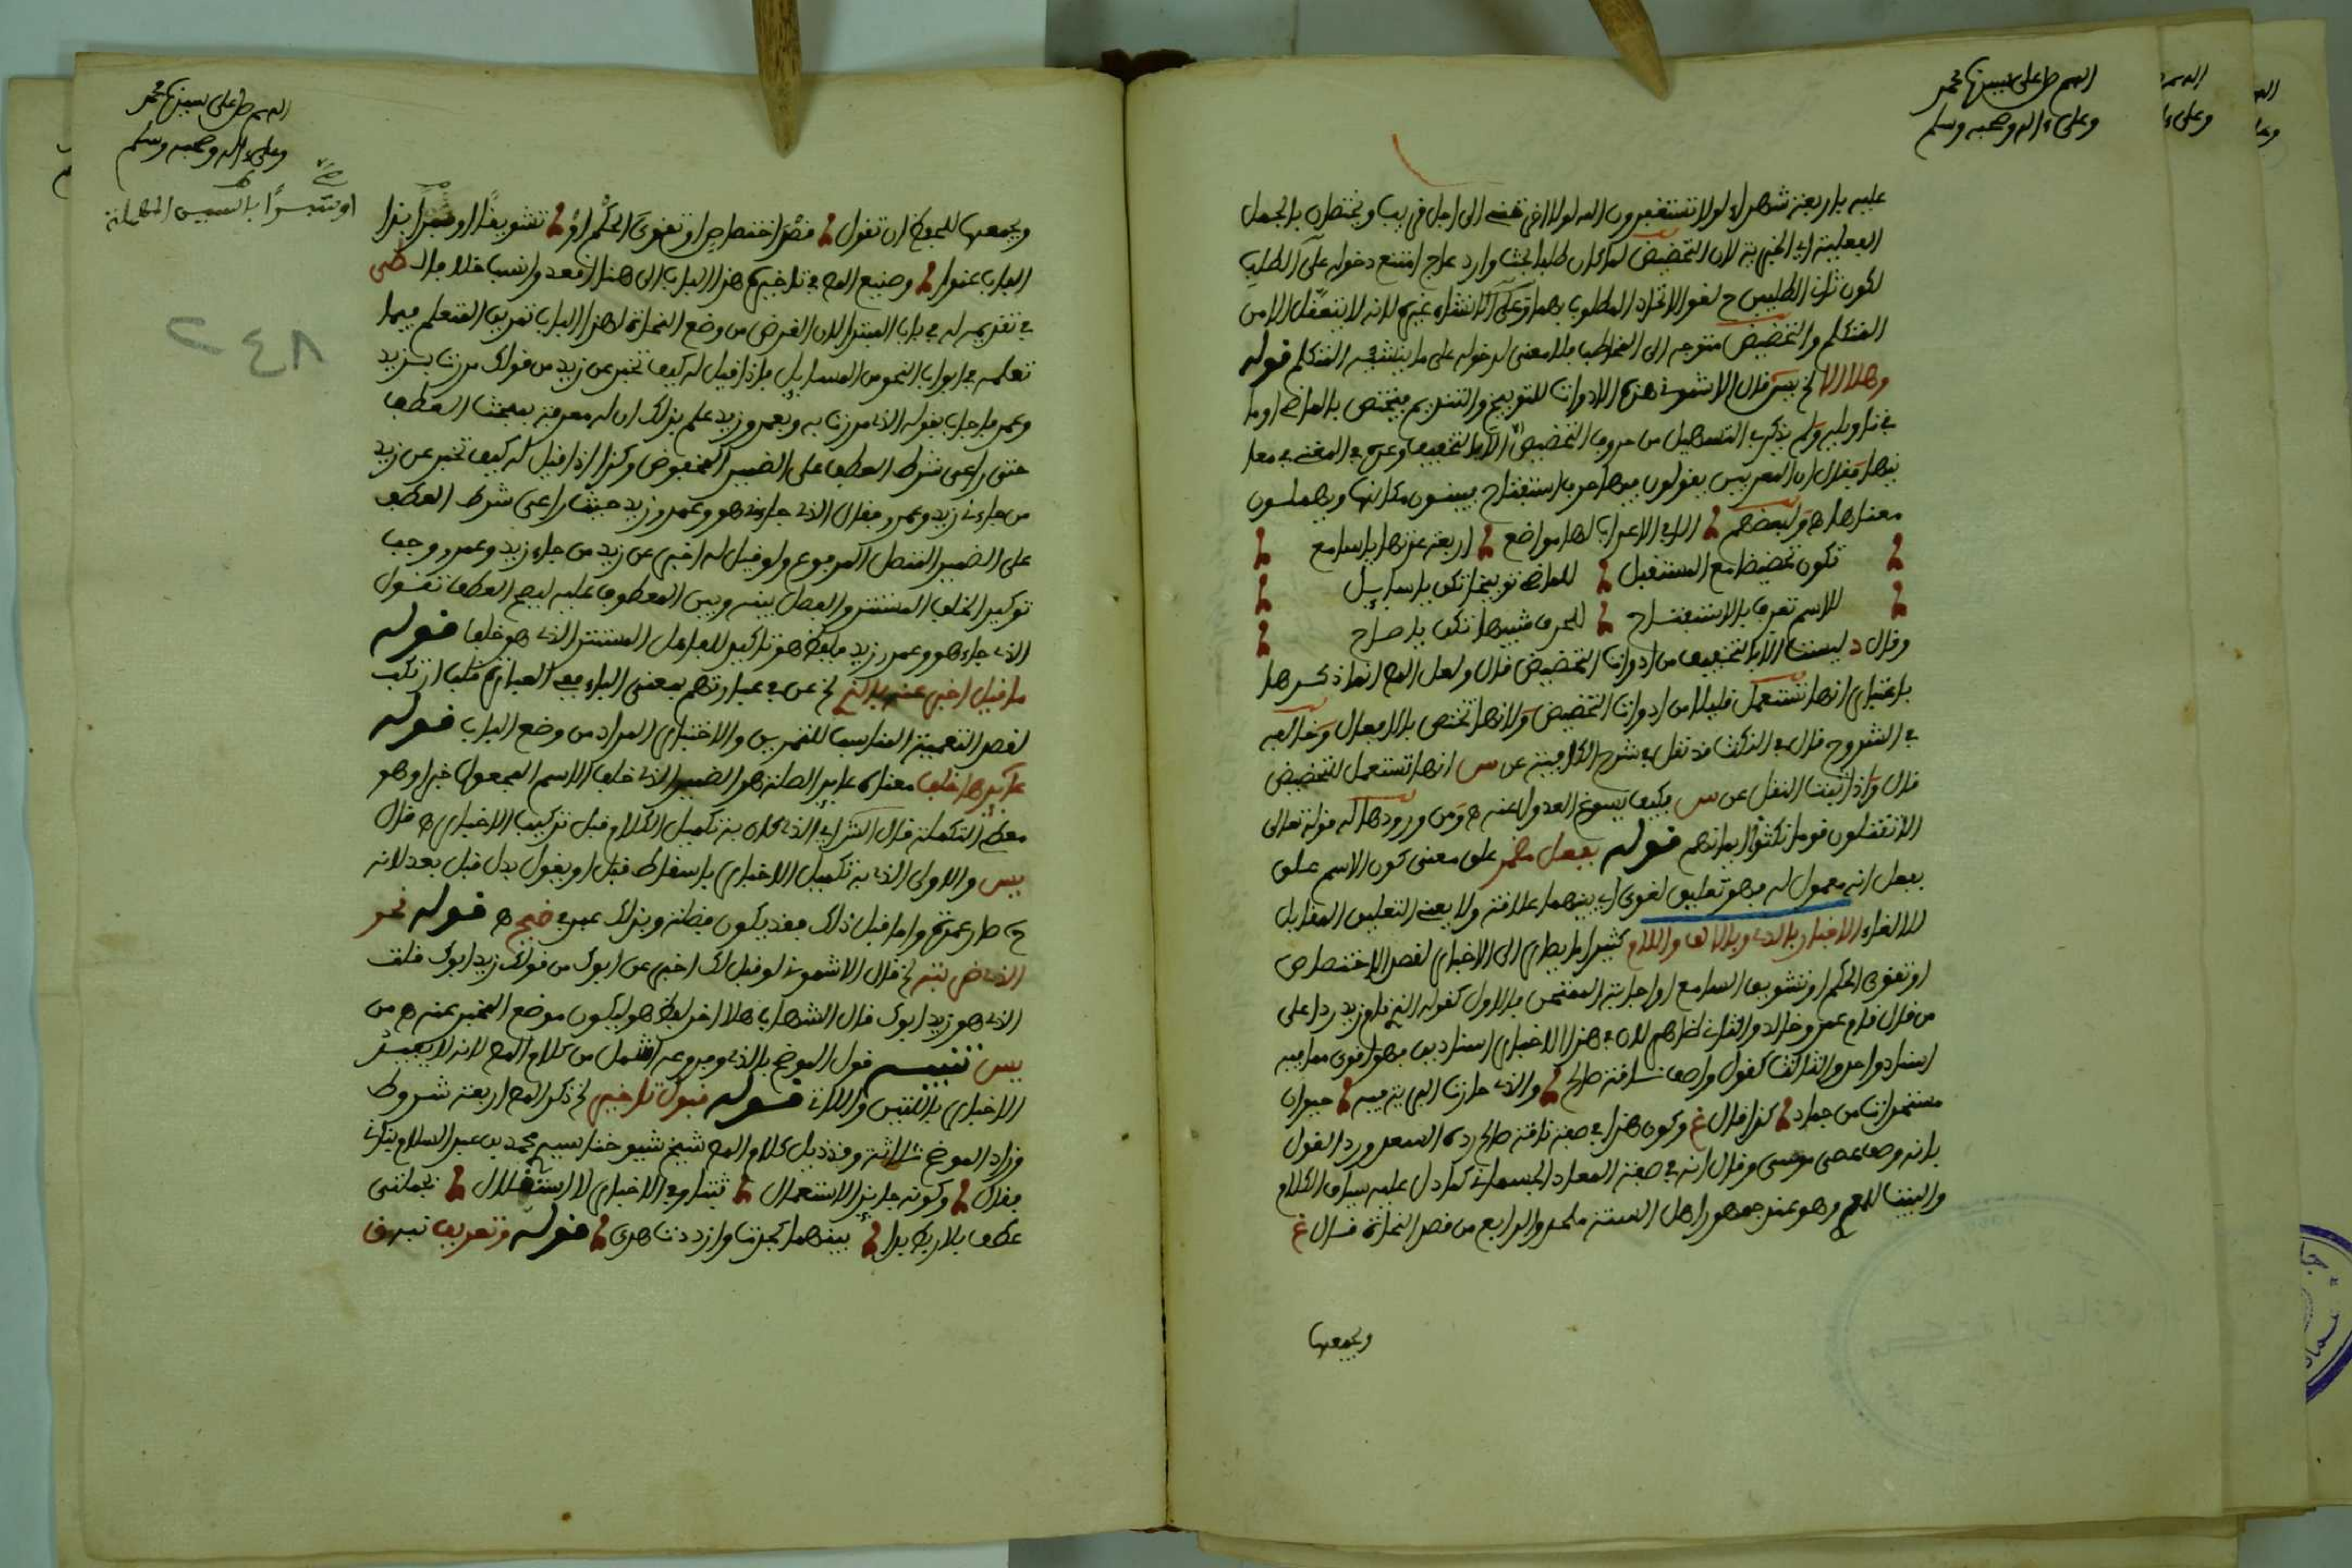 اللهم صل على سيدنا محمد
وعلى ءاله وصحبه وسلم
عليه باربعة شهداء لولا تستغفرون الله لولا اخرتني الى اجل قريب ويختصان بالجمل
الفعلية اي الخبرية لان التحضيض لما كان طلبا بحث وازعاج امتنع دخوله على الطلب
لكون ثاني الطلبين ح لغوا لاتحاد المطلوب بهما وعلى الانشاء غيره لانه لا يتعقل الا من
المتكلم والتحضيض متوجه الى المخاطب فلا معنى لدخوله على ما ينشئه المتكلم قوله
وهلا الا لخ يس قال الاشموني هذه الادوات للتوبيخ والتنديم فيختص بالماضي او ما
في تاويله ولم يذكر في التسهيل من حروف التحضيض الا بالتخفيف وعن في المغني في معا
نيها فقال ان المعربين يقولون فيها حرف استفتاح فيبينون مكانها ويهملون
معناها ه ولبعضهم الا في الاعراب لها مواضع اربعة عدتها يا سامع
تكون تحضيضا مع المستقبل للماضي توبيخا تكن يا سايل
للاسم تعرف بالاستفتاح للحرف تنبيها تكن يا صاح
وقال د ليست الا بالتخفيف من ادوات التحضيض قال ولعل المص انما ذكرها
باعتبار انها تستعمل قليلا من ادوات التحضيض ولانها تختص بالافعال وخالفه
في الشروح قال في النكت قد نقل في شرح الكافية عن س انها تستعمل للتحضيض
قال واذا ثبت النقل عن س فكيف يسوغ العدول عنه ه ومن ورودها له قوله تعالى
الا تقاتلون قوما نكثوا ايمانهم قوله بفعل مضمر على معنى كون الاسم علق
بفعل انه معمول له فهو تعليق لغوي اي بينهما علاقة ولا يعني التعليق المقابل
للالغاء الاخبار بالذي وبالالف واللام كثيرا ما يطرا الى الاخبار لقصد الاختصاص
او تقوي الحكم او تشويق السامع او اجابة الممتحن فالاول كقولك الذي قام زيد ردا على
من قال قام عمرو وخالد والثاني لان في هذا الاخبار اسنادين فهو اقوى مما فيه
اسناد واحد والثالث كقول واصف ناقة صالح والذي حارت البرية فيه حيوان
مستحدث من جماد كذا قال غ وكون هذا في صفة ناقة صالح رده السعد ورد القول
بانه وصف عصى موسى وقال انه في صفة المعاد الجسماني كما دل عليه سياق الكلام
والبيت للمعري وهو عند جمهور اهل السنة ملحد والرابع من قصد النحاة قال غ
ويجمعها
اللهم صل على سيدنا محمد
وعلى ءاله وصحبه وسلم
او تيسيرا بالسين المهملة
ويجمعها للحفظ ان تقول قصد اختصاص او تقوي الحكم او تشويقا او بذا
الباب عنوا وصنيع المص في تاخيره هذا الباب الى هنا اقعد وانسب خلافا لـ
في تقديمه له في باب المبتدا لان الغرض من وضع النحاة لهذا الباب تمرين المتعلم فيما
تعلمه في ابواب النحو من المسايل فاذا قيل له كيف تخبر عن زيد من قولك مررت بزيد
وعمرو فاجاب بقوله الذي مررت به وبعمرو زيد علم بذلك ان له معرفة بمبحث العطف
حتى راعى شرط العطف على الضمير المخفوض وكذا اذا قيل له كيف تخبر عن زيد
من جاءني زيد وعمرو فقال الذي جاءني هو وعمرو زيد حيث راعى شرط العطف
على الضمير المتصل المرفوع ولو قيل له اخبر عن زيد من جاء زيد وعمرو وجب
توكيد الخلف المستتر والفصل بينه وبين المعطوف عليه ليصح العطف تقول
الذي جاء هو وعمرو زيد فلفظ هو تاكيد للفاعل المستتر الذي هو خلف قوله
ما قيل اخبر عنه بالذي لخ عن في عبارتهم بمعنى الباء ففي العبارة قلب ارتكب
لقصد التعمية المناسب للتمرين والاختبار المراد من وضع الباب قوله
عايدها خلف معناه عايد الصلة هو الضمير الذي خلف الاسم المجعول خبرا وهو
معطي التكملة قال الشراي الذي كان به تكميل الكلام قبل تركيب الاخبار ه قال
يس والاولى الذي به تكميل الاخبار باسقاط قبل او يقول بدل قبل بعد لانه
ح صار عمدة واما قبل ذلك فقد يكون فضلة وبذلك عبر في ضيح ه قوله نحو
الذي ضربته لخ قال الاشموني لو قيل لك اخبر عن ابوك من قولك زيد ابوك قلت
الذي هو زيد ابوك قال الشهاب هلا اخر لفظ هو ليكون موضع المخبر عنه ه من
يس تنبيه قول الموضح بالذي وفروعه اشمل من كلام المص لانه لا يفيد
الاخبار باللتين واللاتي قوله قبول تاخير لخ ذكر المص اربعة شروط
وزاد الموضح ثلاثة وقد ذيل كلام المص شيخ شيوخنا سيدي محمد بن عبد السلام بناني
فقال وكونه جايز الاستعمال في الاخبار لا استقلال بجملتي
عطف بلا ربط بدا بينهما كجدت وازددت هدى قوله وتعريف تيرف